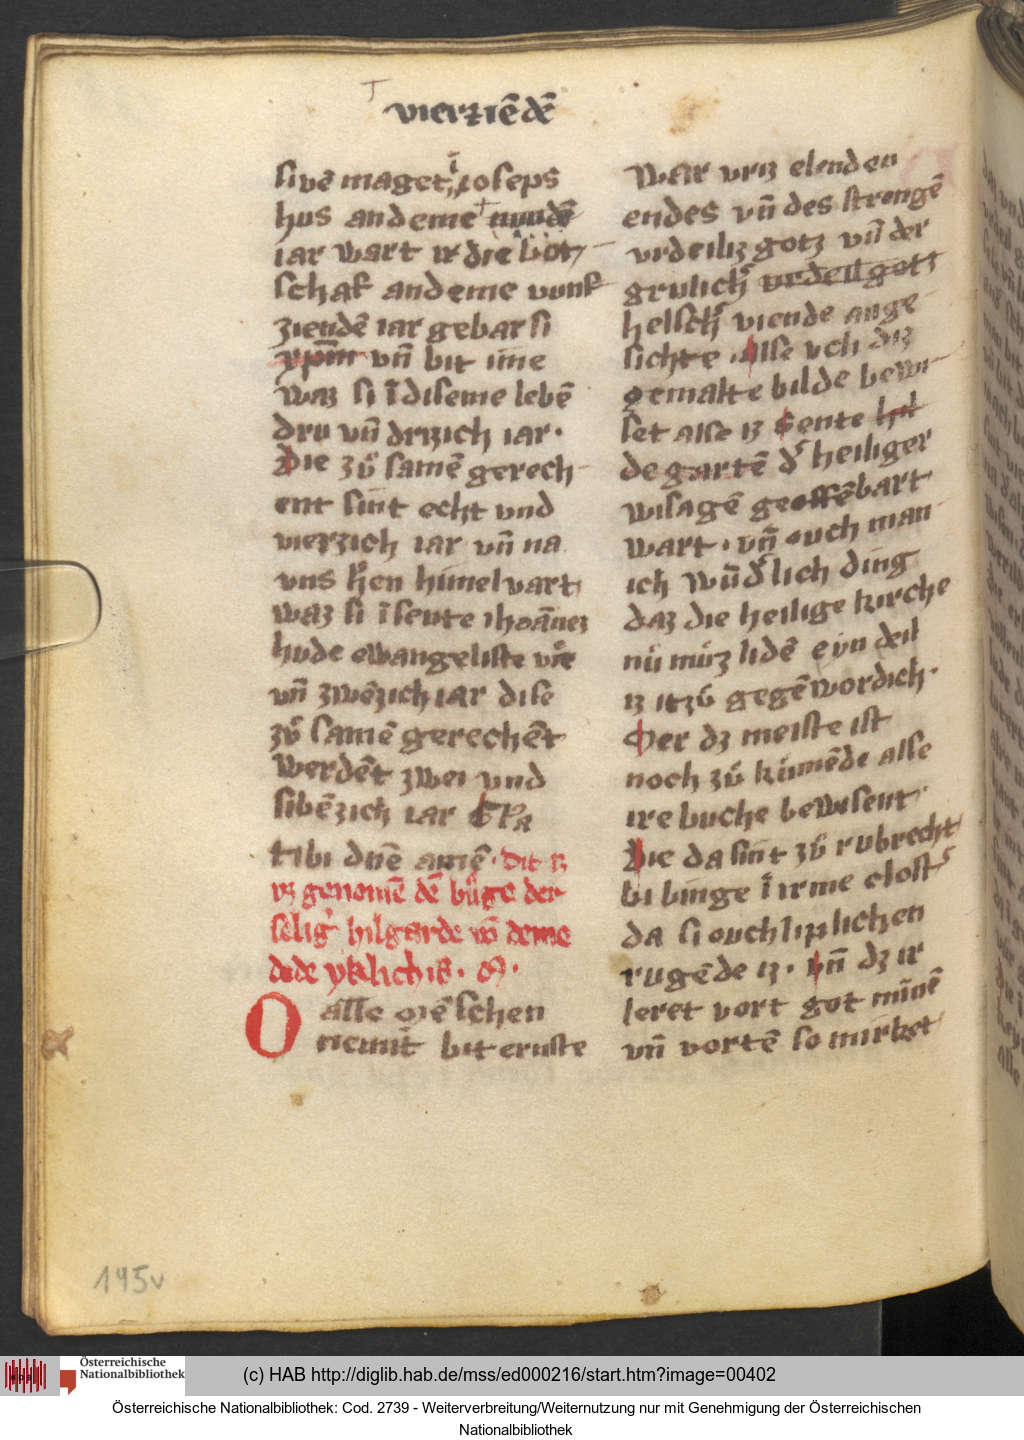 vierziē dē
sivē maget ioseps
hus an deme nundē
iar wart ir die bot
schaf an deme vunf
ziendē iar gebar si
xpm̄ vn̄ bit ime
waz si ī diseme lebē
dru vn̄ drizich iar·
Die zů samē gerech
ent sint echt vnd
vierzich iar vn̄ na
vns hēn himel vart
waz si ī sente ihoānes
hude ewangeliste vier
vn̄ zwēzich iar dise
zů samē gerechēt
werdēt zwei vnd
sibēzich iar Gra
tibi dn̄e amē· dit iz
vz genomē dē bůge der
selig hilgarde vō deme
dode
O alle mēschen
nemit bit ernste
war vriz elenden
endes vn̄ des strengē
vrdeiliz gotz vn̄ der
grulich vrdeil gotz
helsch viende ange
sichte · Alse vch diz
gemalte bilde bewi
set alse iz Sente hil
degartē d' heiliger
wisagē geoffēbart
wart · vn̄ ouch man
ich wūd'lich ding
daz die heilige kirche
nū mūz lidē eyn deil
iz itzů gegēwordich·
Mer dz meiste ist
noch zů kūmēde alse
ire buche bewisent
Die da sint zů rubrecht
bi binge ī irme clost'
da si ouch liplichen
rugēde iz · vn̄ dz ir
leret vort got minnē
vn̄ vortē so mirket
195v
Österreichische
Nationalbibliothek
(c) HAB http://diglib.hab.de/mss/ed000216/start.htm?image=00402
Österreichische Nationalbibliothek: Cod. 2739 - Weiterverbreitung/Weiternutzung nur mit Genehmigung der Österreichischen
Nationalbibliothek